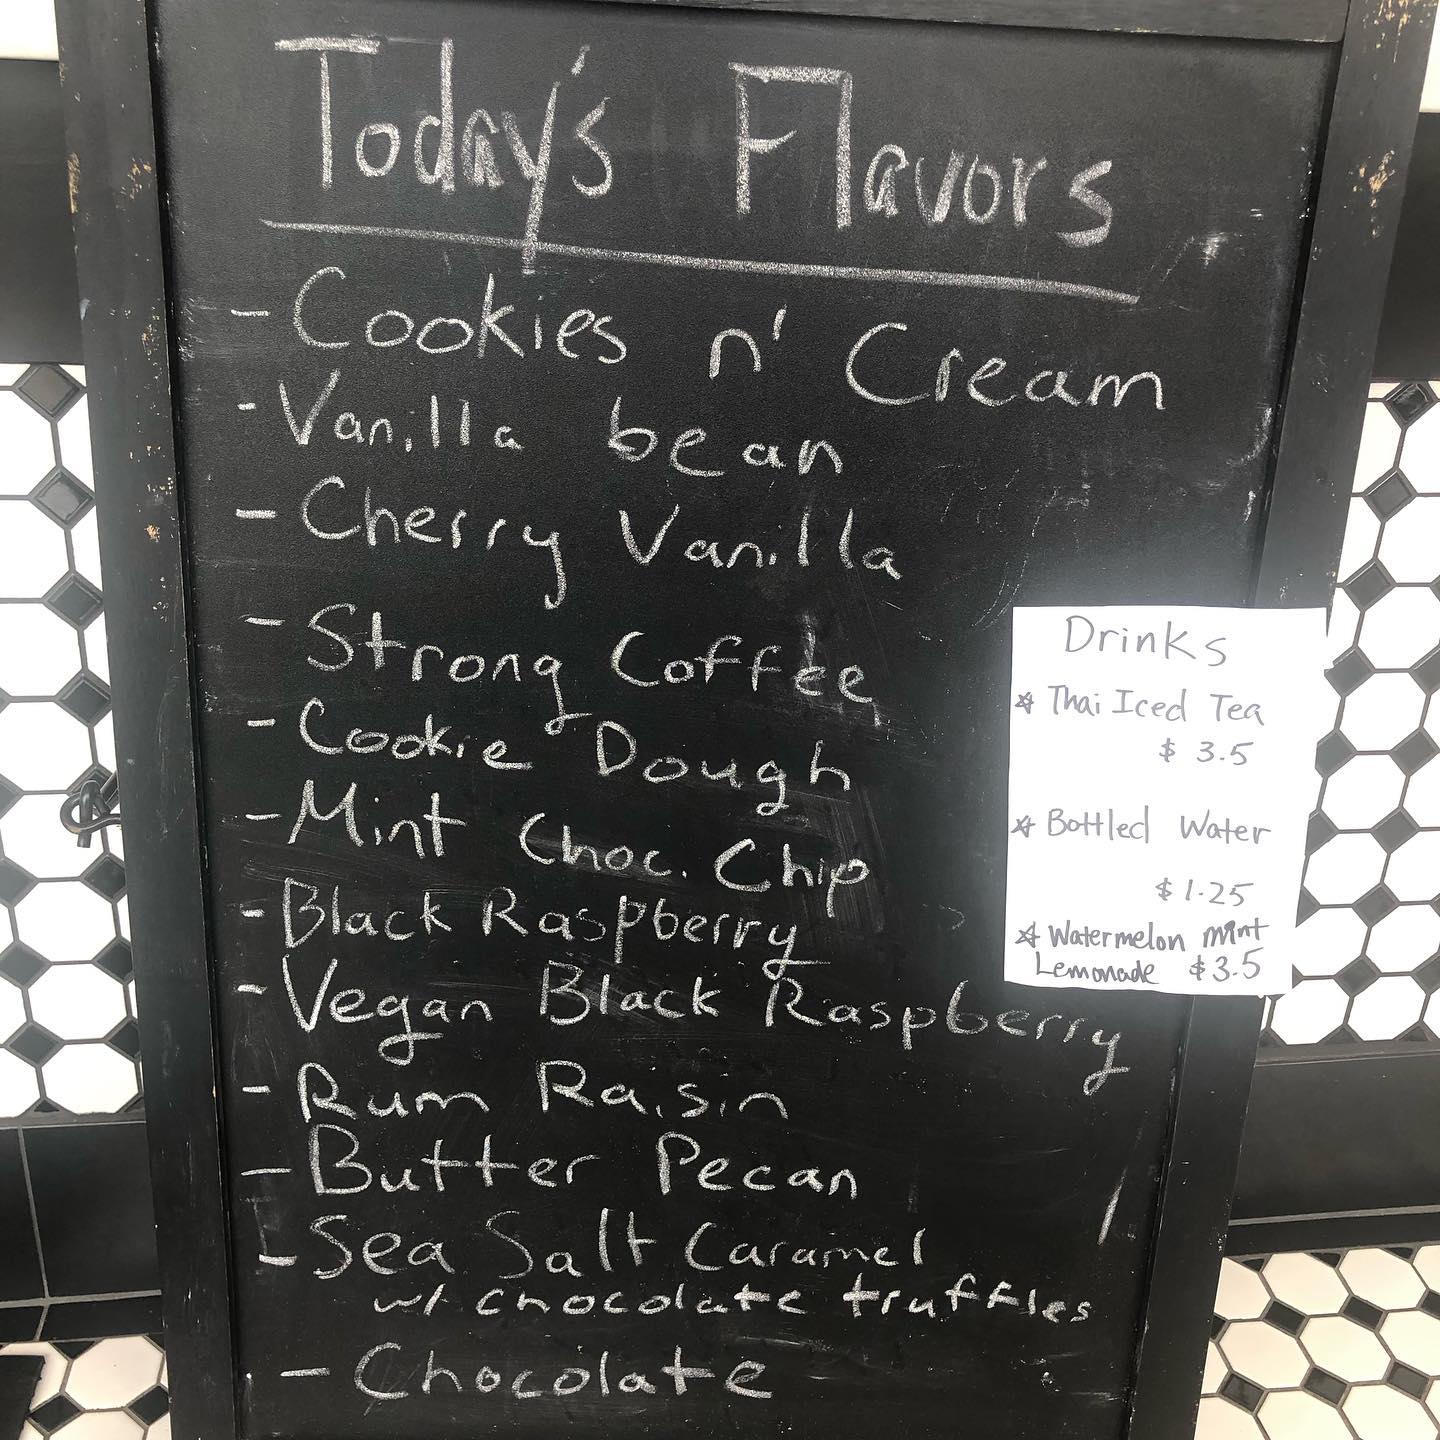 Today's Flavors
- Cookies n' Cream
- Vanilla bean
- Cherry Vanilla
- Strong Coffee
- Cookie Dough
- Mint Choc. Chip
- Black Raspberry
- Vegan Black Raspberry
- Rum Raisin
- Butter Pecan
- Sea Salt Caramel
w/ chocolate truffles
- Chocolate
Drinks
☆ Thai Iced Tea
$ 3.5
☆ Bottled Water
$ 1.25
☆ Watermelon mint
Lemonade $3.5